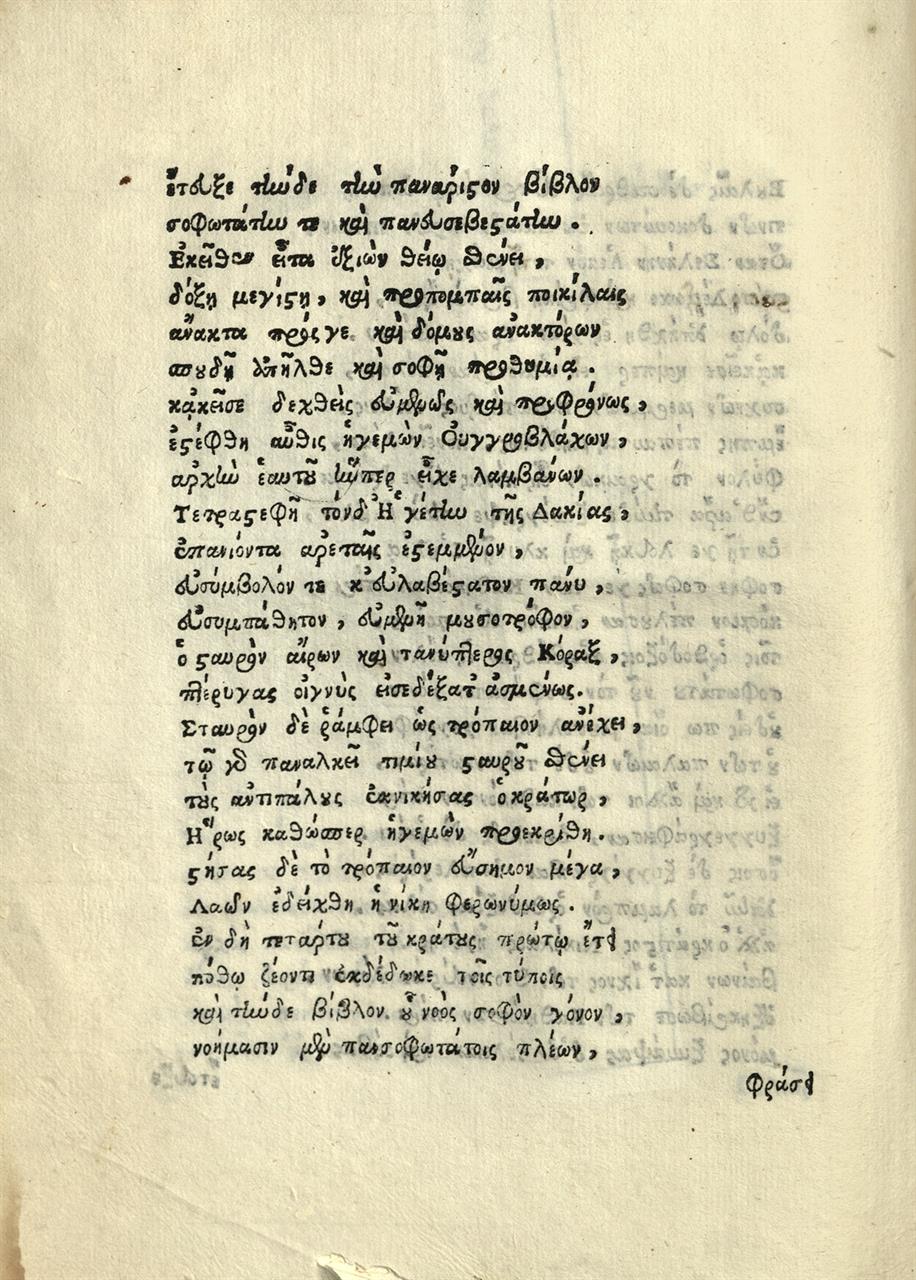 ἔταξε τήνδε τὴν πανάριστον βίβλον
σοφωτάτην τε καὶ πανευσεβεστάτην.
Ἐκεῖθεν εἶτα ἐξιὼν θείῳ σθένει,
δόξῃ μεγίστῃ, καὶ προπομπαῖς ποικίλαις
ἄνακτα πρός γε καὶ δόμους ἀνακτόρων
σπουδῇ ἐπῆλθε καὶ σοφῇ προθυμίᾳ.
κᾀκεῖσε δεχθεὶς εὐμενῶς καὶ προφρόνως,
ἐστέφθη αὖθις ἡγεμὼν Οὐγγροβλάχων,
ἀρχὴν ἑαυτοῦ ἥνπερ εἶχε λαμβάνων.
Τετραστεφῆ τόνδ' Ἡγέτην τῆς Δακίας,
ἐπανιόντα ἀρεταῖς ἐστεμμένον,
εὐσύμβολόν τε κ' εὐλαβέστατον πάνυ,
εὐσυμπάθητον, εὐμενῆ μουσοτρόφον,
ὁ σταυρὸν αἴρων καὶ τανύπτερος Κόραξ,
πτέρυγας οἰγνὺς εἰσεδέξατ' ἀσμένως.
Σταυρὸν δὲ ῥάμφει ὡς τρόπαιον ἀνέχει,
τῷ γὰρ παναλκεῖ τιμίου σταυροῦ σθένει
τοὺς ἀντιπάλους ἐκνικήσας ὁ κράτωρ,
Ἥρως καθώσπερ ἡγεμὼν προεκρίθη.
στήσας δὲ τὸ τρόπαιον εὔσημον μέγα,
Λαῶν ἐδείχθη ἡ νίκη φερωνύμως.
ἐν δὴ τετάρτου τοῦ κράτους πρώτῳ ἔτει
πόθῳ ζέοντι ἐκδέδωκε τοῖς τύποις
καὶ τήνδε βίβλον οὗ νοὸς σοφὸν γόνον,
νοήμασιν μὲν πανσοφωτάτοις πλέων,
φράσει